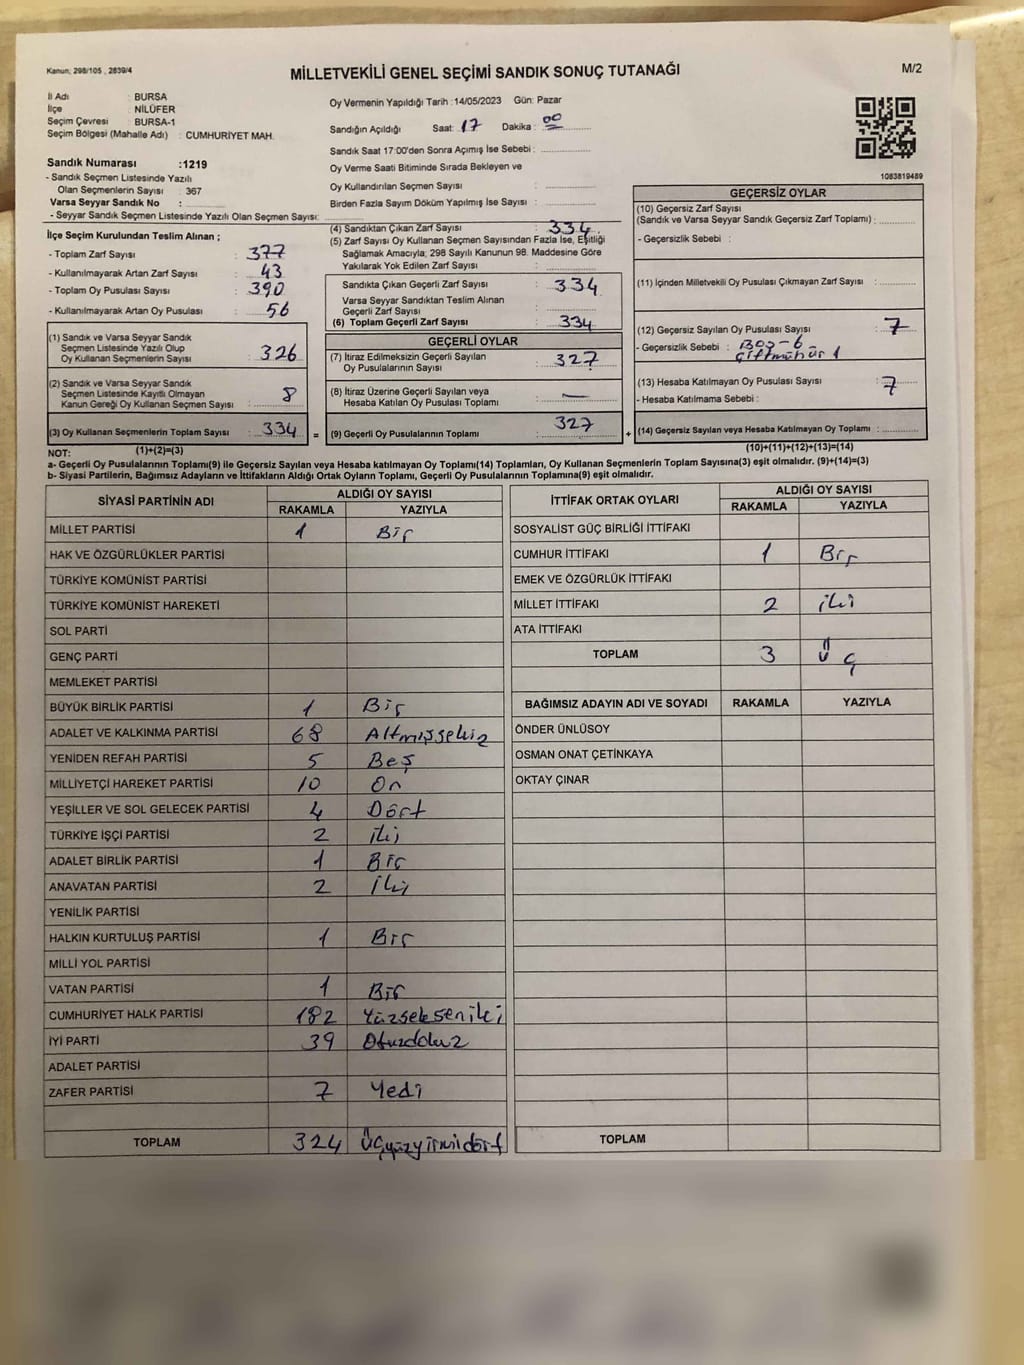 Kanun; 298/105 , 2839/4
MİLLETVEKİLİ GENEL SEÇİMİ SANDIK SONUÇ TUTANAĞI
M/2
İl Adı : BURSA
İlçe : NİLÜFER
Seçim Çevresi : BURSA-1
Seçim Bölgesi (Mahalle Adı) : CUMHURİYET MAH.
Sandık Numarası :1219
- Sandık Seçmen Listesinde Yazılı
Olan Seçmenlerin Sayısı : 367
Varsa Seyyar Sandık No :
- Seyyar Sandık Seçmen Listesinde Yazılı Olan Seçmen Sayısı:
Oy Vermenin Yapıldığı Tarih :14/05/2023 Gün: Pazar
Sandığın Açıldığı Saat: 17 Dakika : 00
Sandık Saat 17:00'den Sonra Açımış İse Sebebi:
Oy Verme Saati Bitiminde Sırada Bekleyen ve
Oy Kullandırılan Seçmen Sayısı :
Birden Fazla Sayım Döküm Yapılmış İse Sayısı :
1083819489
İlçe Seçim Kurulundan Teslim Alınan ;
- Toplam Zarf Sayısı : 377
- Kullanılmayarak Artan Zarf Sayısı : 43
- Toplam Oy Pusulası Sayısı : 390
- Kullanılmayarak Artan Oy Pusulası : 56
(1) Sandık ve Varsa Seyyar Sandık
Seçmen Listesinde Yazılı Olup
Oy Kullanan Seçmenlerin Sayısı : 326
(2) Sandık ve Varsa Seyyar Sandık
Seçmen Listesinde Kayıtlı Olmayan
Kanun Gereği Oy Kullanan Seçmen Sayısı : 8
(3) Oy Kullanan Seçmenlerin Toplam Sayısı : 334
(4) Sandıktan Çıkan Zarf Sayısı : 334
(5) Zarf Sayısı Oy Kullanan Seçmen Sayısından Fazla İse, Eşitliği
Sağlamak Amacıyla, 298 Sayılı Kanunun 98. Maddesine Göre
Yakılarak Yok Edilen Zarf Sayısı :
Sandıkta Çıkan Geçerli Zarf Sayısı : 334
Varsa Seyyar Sandıktan Teslim Alınan
Geçerli Zarf Sayısı :
(6) Toplam Geçerli Zarf Sayısı : 334
GEÇERLİ OYLAR
(7) İtiraz Edilmeksizin Geçerli Sayılan
Oy Pusulalarının Sayısı : 327
(8) İtiraz Üzerine Geçerli Sayılan veya
Hesaba Katılan Oy Pusulası Toplamı : —
= (9) Geçerli Oy Pusulalarının Toplamı : 327
GEÇERSİZ OYLAR
(10) Geçersiz Zarf Sayısı
(Sandık ve Varsa Seyyar Sandık Geçersiz Zarf Toplamı) :
- Geçersizlik Sebebi :
(11) İçinden Milletvekili Oy Pusulası Çıkmayan Zarf Sayısı :
(12) Geçersiz Sayılan Oy Pusulası Sayısı : 7
- Geçersizlik Sebebi : Boş-6
Çiftmühür 1
(13) Hesaba Katılmayan Oy Pusulası Sayısı : 7
- Hesaba Katılmama Sebebi :
+ (14) Geçersiz Sayılan veya Hesaba Katılmayan Oy Pusulası Toplamı :
NOT: (1)+(2)=(3) (10)+(11)+(12)+(13)=(14)
a- Geçerli Oy Pusulalarının Toplamı(9) ile Geçersiz Sayılan veya Hesaba katılmayan Oy Toplamı(14) Toplamları, Oy Kullanan Seçmenlerin Toplam Sayısına(3) eşit olmalıdır. (9)+(14)=(3)
b- Siyasi Partilerin, Bağımsız Adayların ve İttifakların Aldığı Ortak Oyların Toplamı, Geçerli Oy Pusulalarının Toplamına(9) eşit olmalıdır.
SİYASİ PARTİNİN ADI ALDIĞI OY SAYISI
RAKAMLA YAZIYLA
MİLLET PARTİSİ 1 Bir
HAK VE ÖZGÜRLÜKLER PARTİSİ
TÜRKİYE KOMÜNİST PARTİSİ
TÜRKİYE KOMÜNİST HAREKETİ
SOL PARTİ
GENÇ PARTİ
MEMLEKET PARTİSİ
BÜYÜK BİRLİK PARTİSİ 1 Bir
ADALET VE KALKINMA PARTİSİ 68 Altmışsekiz
YENİDEN REFAH PARTİSİ 5 Beş
MİLLİYETÇİ HAREKET PARTİSİ 10 On
YEŞİLLER VE SOL GELECEK PARTİSİ 4 Dört
TÜRKİYE İŞÇİ PARTİSİ 2 iki
ADALET BİRLİK PARTİSİ 1 Bir
ANAVATAN PARTİSİ 2 iki
YENİLİK PARTİSİ
HALKIN KURTULUŞ PARTİSİ 1 Bir
MİLLİ YOL PARTİSİ
VATAN PARTİSİ 1 Bir
CUMHURİYET HALK PARTİSİ 182 Yüzsekseniki
İYİ PARTİ 39 Otuzdokuz
ADALET PARTİSİ
ZAFER PARTİSİ 7 Yedi
TOPLAM 324 Üçyüzyirmidört
İTTİFAK ORTAK OYLARI ALDIĞI OY SAYISI
RAKAMLA YAZIYLA
SOSYALİST GÜÇ BİRLİĞİ İTTİFAKI
CUMHUR İTTİFAKI 1 Bir
EMEK VE ÖZGÜRLÜK İTTİFAKI
MİLLET İTTİFAKI 2 iki
ATA İTTİFAKI
TOPLAM 3 Üç
BAĞIMSIZ ADAYIN ADI VE SOYADI RAKAMLA YAZIYLA
ÖNDER ÜNLÜSOY
OSMAN ONAT ÇETİNKAYA
OKTAY ÇINAR
TOPLAM